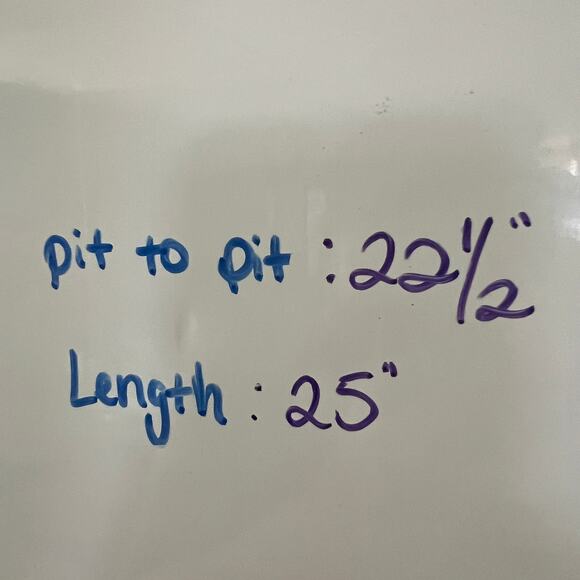 pit to pit : 22 1/2"
Length : 25"